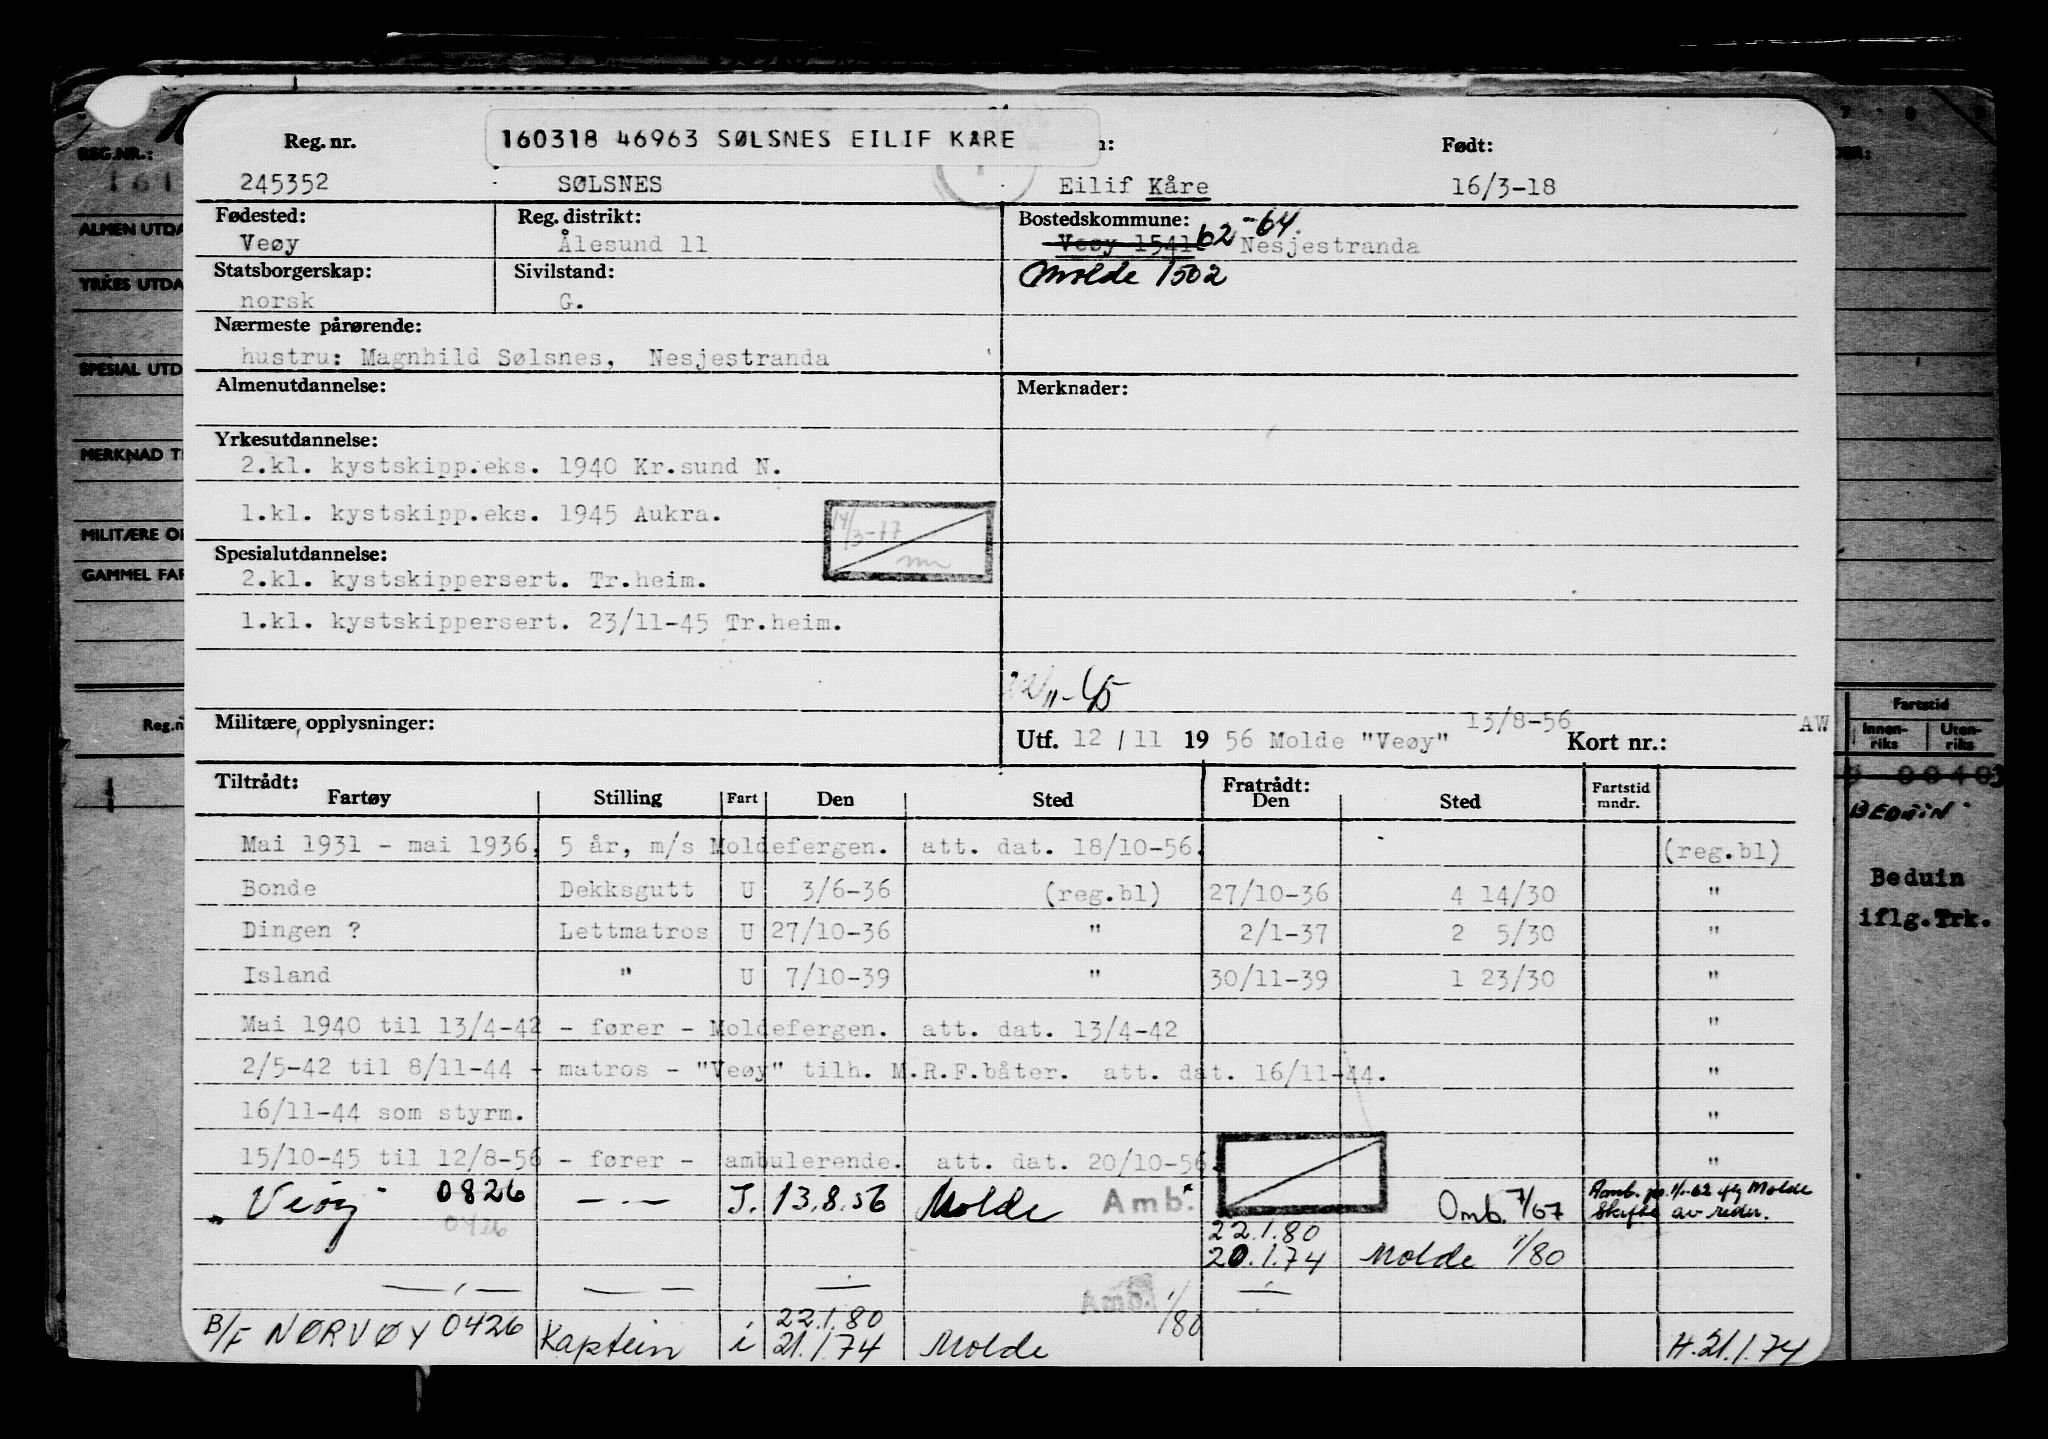 160318 46963 SØLSNES EILIF KÅRE
Reg. nr. Født:
245352 SØLSNES Eilif Kåre 16/3-18
Fødested: Reg. distrikt: Bostedskommune: 62-64.
Veøy Ålesund 11 Veøy 1541 Nesjestranda
Statsborgerskap: Sivilstand: Molde 1502
norsk G.
Nærmeste pårørende:
hustru: Magnhild Sølsnes, Nesjestranda
Almenutdannelse: Merknader:
Yrkesutdannelse:
2.kl. kystskipp.eks. 1940 Kr.sund N.
1.kl. kystskipp.eks. 1945 Aukra.
14/3-77
Spesialutdannelse:
2.kl. kystskippersert. Tr.heim.
1.kl. kystskippersert. 23/11-45 Tr.heim.
22/11-45
Militære opplysninger: 13/8-56 AW
Utf. 12 / 11 19 56 Molde "Veøy" Kort nr.:
Tiltrådt: Fratrådt:
Fartøy Stilling Fart Den Sted Den Sted Fartstid mndr.
Mai 1931 - mai 1936, 5 år, m/s Moldefergen. att. dat. 18/10-56. (reg.bl)
Bonde Dekksgutt U 3/6-36 (reg.bl) 27/10-36 4 14/30 "
Dingen ? Lettmatros U 27/10-36 " 2/1-37 2 5/30 "
Island " U 7/10-39 " 30/11-39 1 23/30 "
Mai 1940 til 13/4-42 - fører - Moldefergen. att. dat. 13/4-42 "
2/5-42 til 8/11-44 - matros - "Veøy" tilh. M.R.F.båter. att. dat. 16/11-44. "
16/11-44 som styrm. "
15/10-45 til 12/8-56 - fører - ambulerende. att. dat. 20/10-56. "
"Veøy" 0826 — · — J. 13.8.56 Molde Amb. Omb. 7/67 Amb. pr. 1/1-62 iflg Molde
0426 Skifte av reder.
22.1.80
20.1.74 Molde 1/80
— · — — · — — · — Amb. 1/80 — · —
22.1.80
B/F NØRVØY 0426 Kaptein i 21.1.74 Molde H.21.1.74
REG.NR.:
161
ALMEN UTDA
YRKES UTDA
SPESIAL UTD
MERKNAD T
MILITÆRE O
GAMMEL FAR
Reg.n
1
Fartstid
Innen-riks Uten-riks
00403
BEDUIN
Beduin
iflg.Trk.